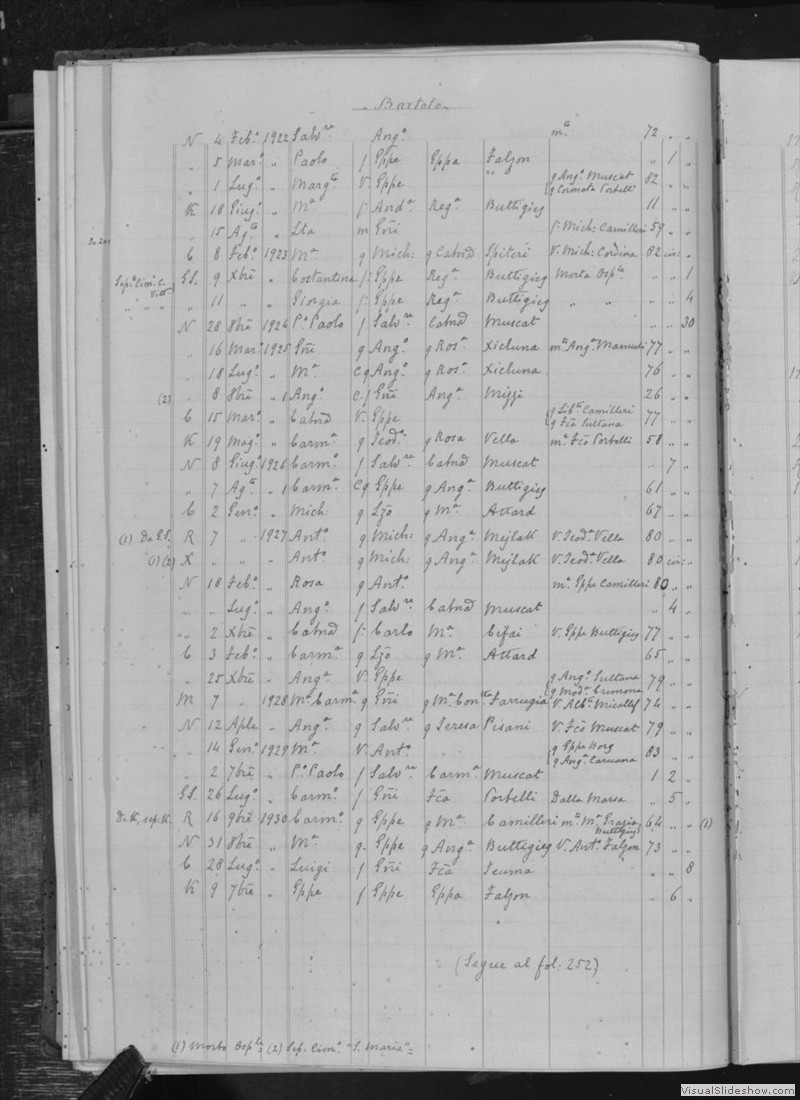 Bartolo
N 4 Feb.o 1922 Salv.re Ang.o m.a 72 " "
" 5 Mar.o " Paolo f Gppe Gppa Falzon " 1 "
" 1 Lug.o " Marg.ta V. Gppe " g Ang.o Muscat g Cormata Corbelli 82 " "
K 18 Giug.o " M.a f: And.a Reg.a Buttigieg 11 " "
" 15 Ag.to " Lta m Gñi f: Mich: Camilleri 59 " "
C 8 Feb.o 1923 M.a g Mich: g Catnã Spiteri V. Mich: Cordina 82 cir: "
Sep.o Cim. C. Vitt. GS. 9 Xbre " Costantina f: Gppe Reg.a Buttigieg Morta Osp.le " " 1
" " " " 11 " " Giorgia f: Gppe Reg.a Buttigieg " " " " 4
N 28 8bre 1924 P.o Paolo f Salv.re Catnã Muscat " " 30
" 16 Mar.o 1925 Gñi g Ang.o g Ros.a Xicluna m.a Ang.a 77 " "
" 18 Lug.o " M.a C g Ang.o g Ros.a Xicluna 76 " "
(2) " 8 8bre " 1 Ang.o C. f Gñi Ang.a Mizzi 26 " "
C 15 Mar.o " Catnã V. Gppe g Lib.ta Camilleri g Fca Sultana 77 " "
K 19 Mag.o " Carm.a g Teod.o g Rosa Vella m.a Fco Corbelli 58 " "
N 8 Giug.o 1926 Carm.o f Salv.re Catnã Muscat " 7 "
" 7 Ag.to " 1 Carm.a C g Gppe g Ang.a Buttigieg 61 " "
C 2 Gen.o " Mich: g Lzo g M.a Attard 67 " "
(1) Da GS. R 7 " 1927 Ant.o g Mich: g Ang.a Mejlak V. Teod.a Vella 80 " "
(1)(2) X " " " Ant.o g Mich: g Ang.a Mejlak V. Teod.a Vella 80 cir: "
N 18 Feb.o " Rosa g Ant.o m.a Gppe Camilleri 80 " "
" " Lug.o " Ang.o f Salv.re Catnã Muscat " 4 "
" 2 Xbre " Catnã f: Carlo M.a Cifai V. Gppe Buttigieg 77 " "
C 3 Feb.o " Carm.a g Lzo g M.a Attard 65 " "
" 25 Xbre " Ang.a V. Gppe g Ang.o Sultana g Mod.a Cremona 79 " "
M 7 " 1928 M.a Carm.a g Gñi g M.a Con.tta Farrugia V. Alb.to Micallef 74 " "
N 12 Aple " Ang.a g Salv.re g Teresa Pisani V. Fco Muscat 79 " "
" 14 Gen.o 1929 M.a V. Ant.o g Gppe Borg g Ang.a Caruana 83 " "
" 2 7bre " P.o Paolo f Salv.re Carm.a Muscat 1 2 "
GS. 26 Lug.o " Carm.o f Gñi Fca Corbelli Dalla Marsa " 5 "
Da K, sep: K. R 16 9bre 1930 Carm.o g Gppe g M.a Camilleri m.a M.a Grazia Buttigieg 64 " " (1)
N 31 8bre " M.a g. Gppe g Ang.a Buttigieg V. Ant.o Falzon 73 " "
C 28 Lug.o " Luigi f Gñi Fca Scuma " " 8
K 9 7bre " Gppe f Gppe Gppa Falzon " 6 "
(Segue al fol. 252)
(1) Morto Osp.le = (2) Sep. Cim.o "S. Maria" =
VisualSlideshow.com